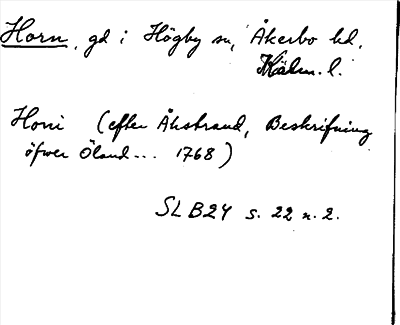 Horn, gd i Högby sn, Åkerbo hd,
Kalm. l.
Horni (efter Åhstrand, Beskrifning
öfwer Öland... 1768)
SLB24 s. 22 n. 2.